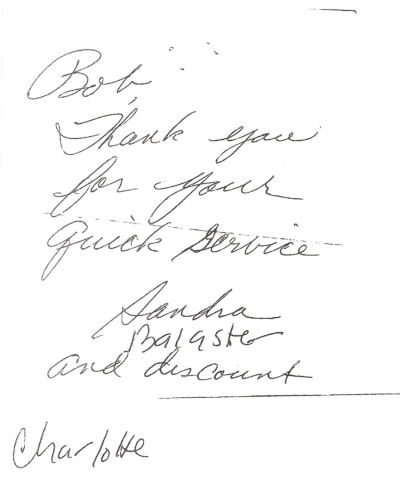 Bob,
Thank you
for your
quick service
Sandra
Balaster
and discount
Charlotte